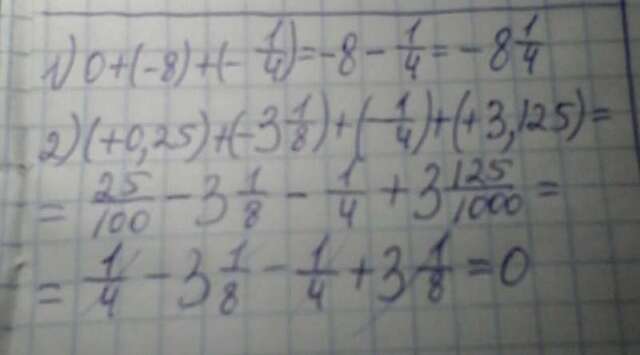 1) 0+(-8)+(-1/4)=-8-1/4=-8 1/4
2) (+0,25)+(-3 1/8)+(-1/4)+(+3,125)=
= 25/100 - 3 1/8 - 1/4 + 3 125/1000 =
= 1/4 - 3 1/8 - 1/4 + 3 1/8 = 0